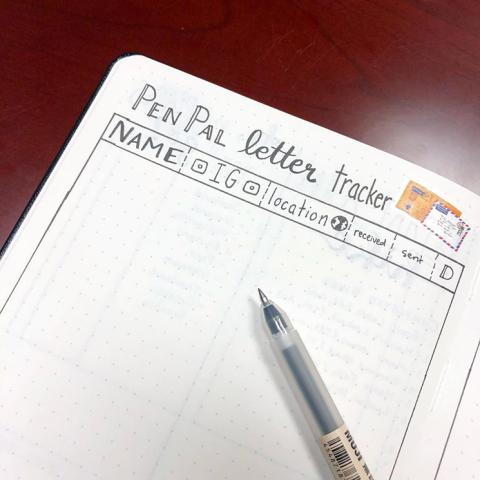 PEN PAL letter tracker
NAME IG location received sent D
MUJI